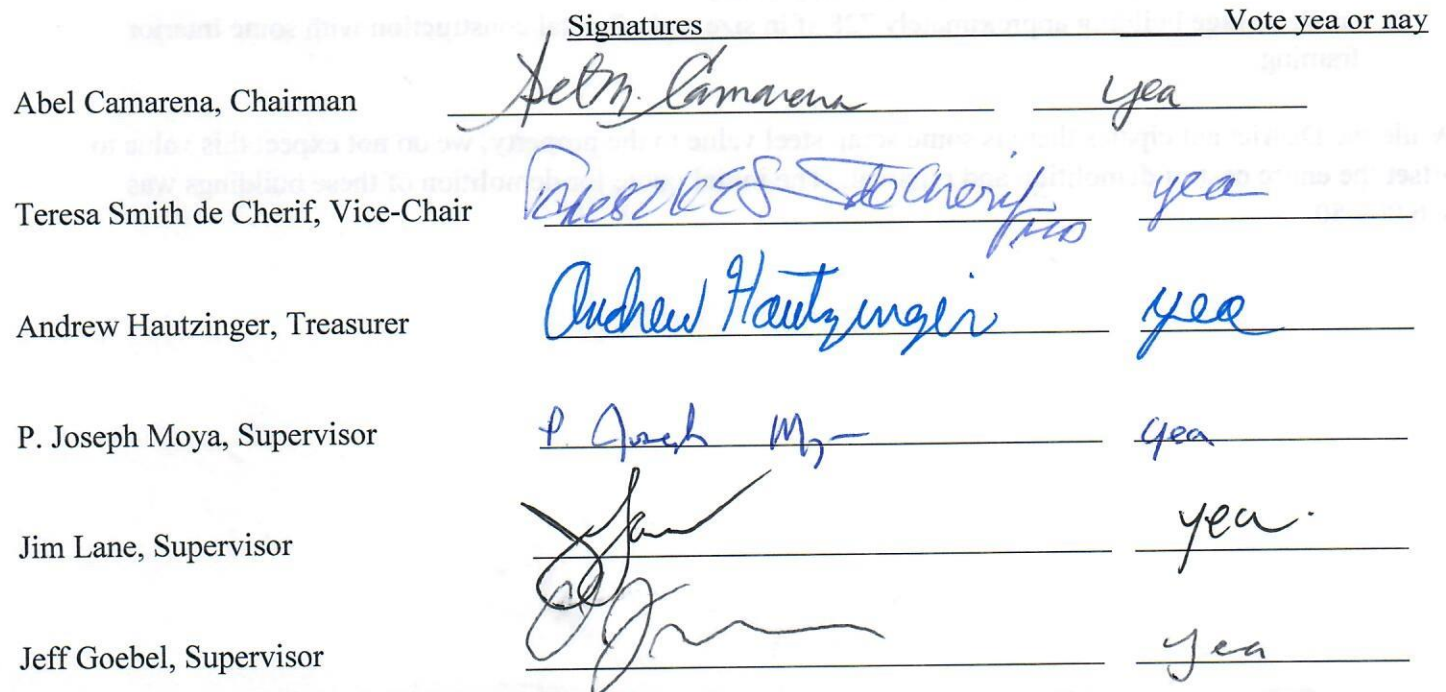 Signatures Vote yea or nay
Abel Camarena, Chairman Abel M. Camarena yea
Teresa Smith de Cherif, Vice-Chair de Cherif, MD yea
Andrew Hautzinger, Treasurer Andrew Hautzinger yea
P. Joseph Moya, Supervisor P. Joseph Moya yea
Jim Lane, Supervisor yea.
Jeff Goebel, Supervisor yea